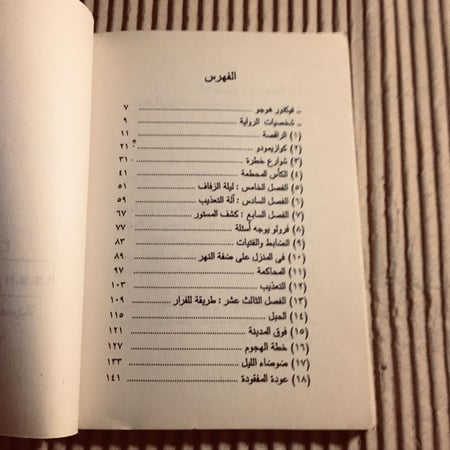 الفهرس
ــ فيكتور هوجو ........ ٧
ــ شخصيات الرواية ........ ٩
(١) الراقصة ........ ١١
(٢) كوازيمودو ........ ٢١
(٣) شوارع خطرة ........ ٣١
(٤) الكأس المحطمة ........ ٤١
(٥) الفصل الخامس : ليلة الزفاف ........ ٥١
(٦) الفصل السادس : آلة التعذيب ........ ٥٩
(٧) الفصل السابع : كشف المستور ........ ٦٧
(٨) فرولو يوجه أسئلة ........ ٧٧
(٩) الضابط والفتيات ........ ٨٣
(١٠) فى المنزل على ضفة النهر ........ ٨٩
(١١) المحاكمة ........ ٩٧
(١٢) التعذيب ........ ١٠٣
(١٣) الفصل الثالث عشر : طريقة للفرار ........ ١٠٩
(١٤) الحبل ........ ١١٥
(١٥) فوق المدينة ........ ١٢١
(١٦) خطة الهجوم ........ ١٢٧
(١٧) ضوضاء الليل ........ ١٣٣
(١٨) عودة المفقودة ........ ١٤١